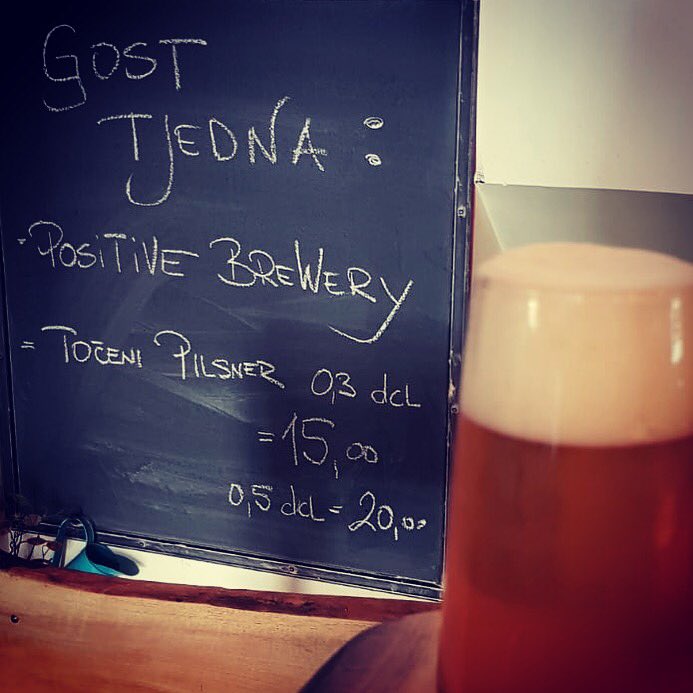 GOST
TJEDNA:
- POSITIVE BREWERY
= TOČENI PILSNER 0,3 dcL
= 15,00
0,5 dcL = 20,00